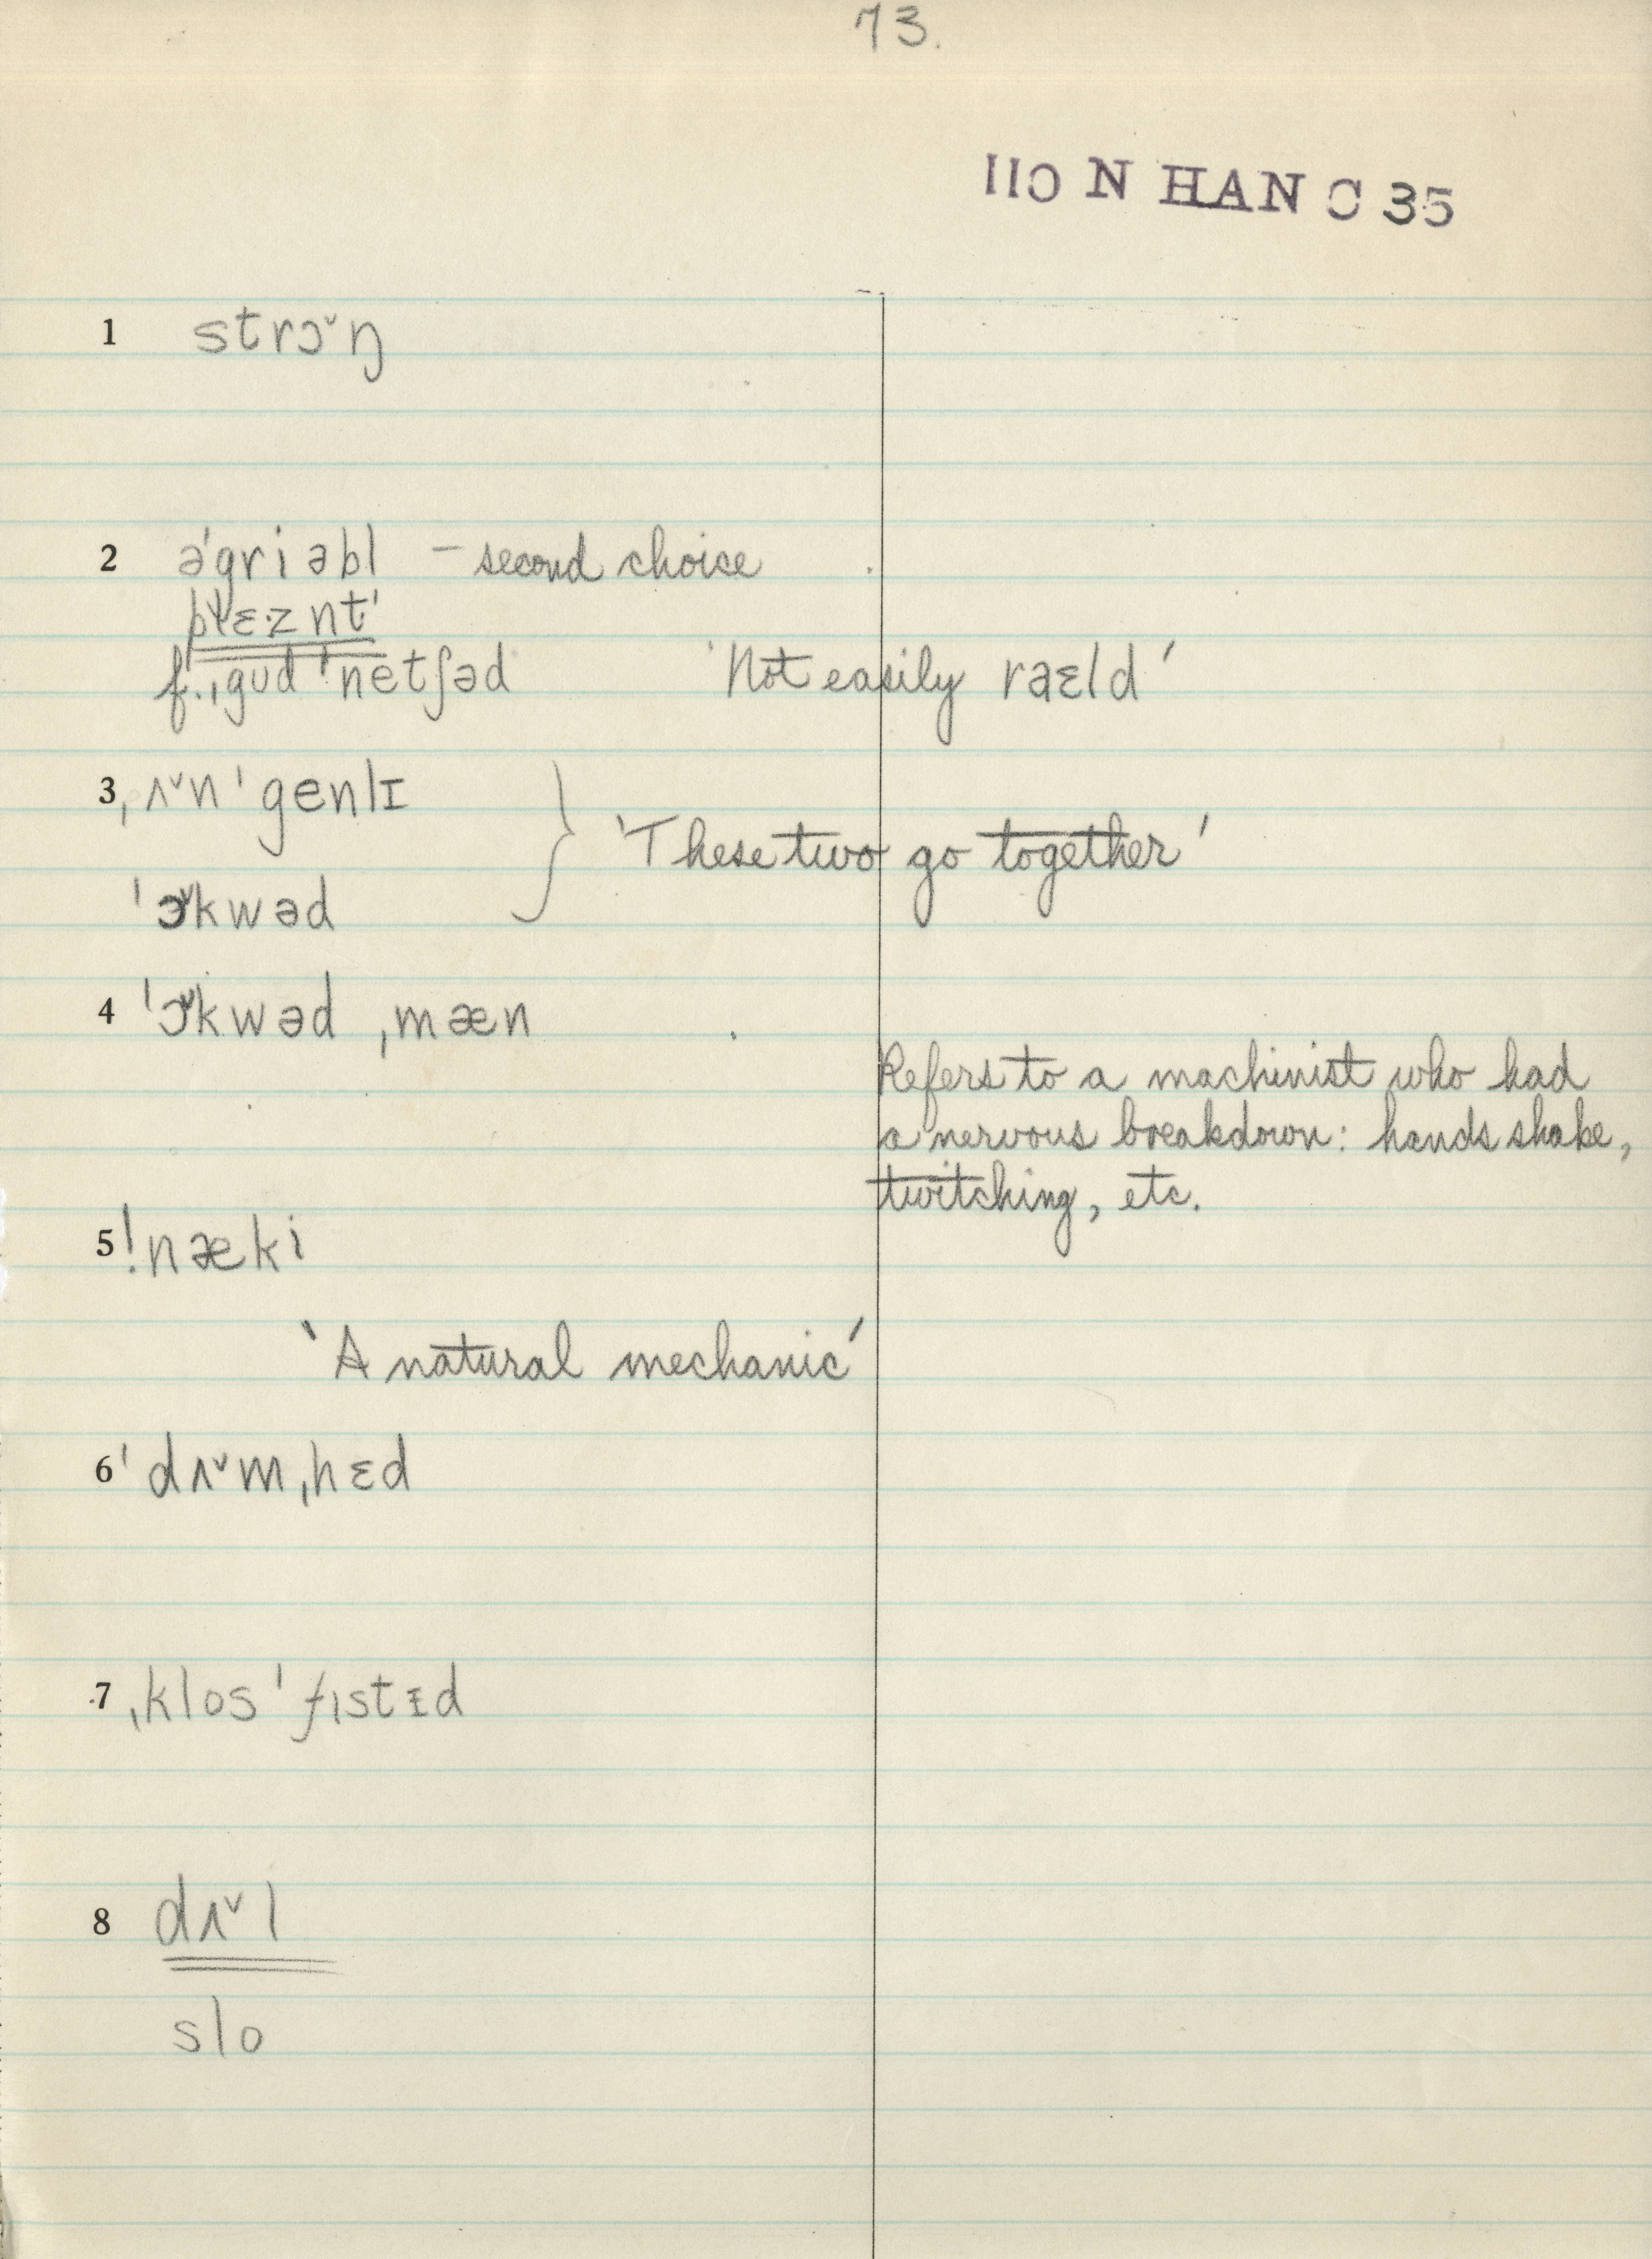 73.
110 N HAN C 35
1 strɔ˅ŋ
2 ə'griəbl – second choice
plɛ·znt'
f. ˌgud 'netʃəd 'Not easily raɛld'
3 ˌʌ˅n'genlɪ
'These two go together'
'ɔ˅kwəd
4 'ɔ˅kwəd ˌmæn
Refers to a machinist who had
a nervous breakdown: hands shake,
twitching, etc.
5 !næki
'A natural mechanic'
6 'dʌ˅mˌhɛd
7 ˌklos'fɪstɪd
8 dʌ˅l
slo